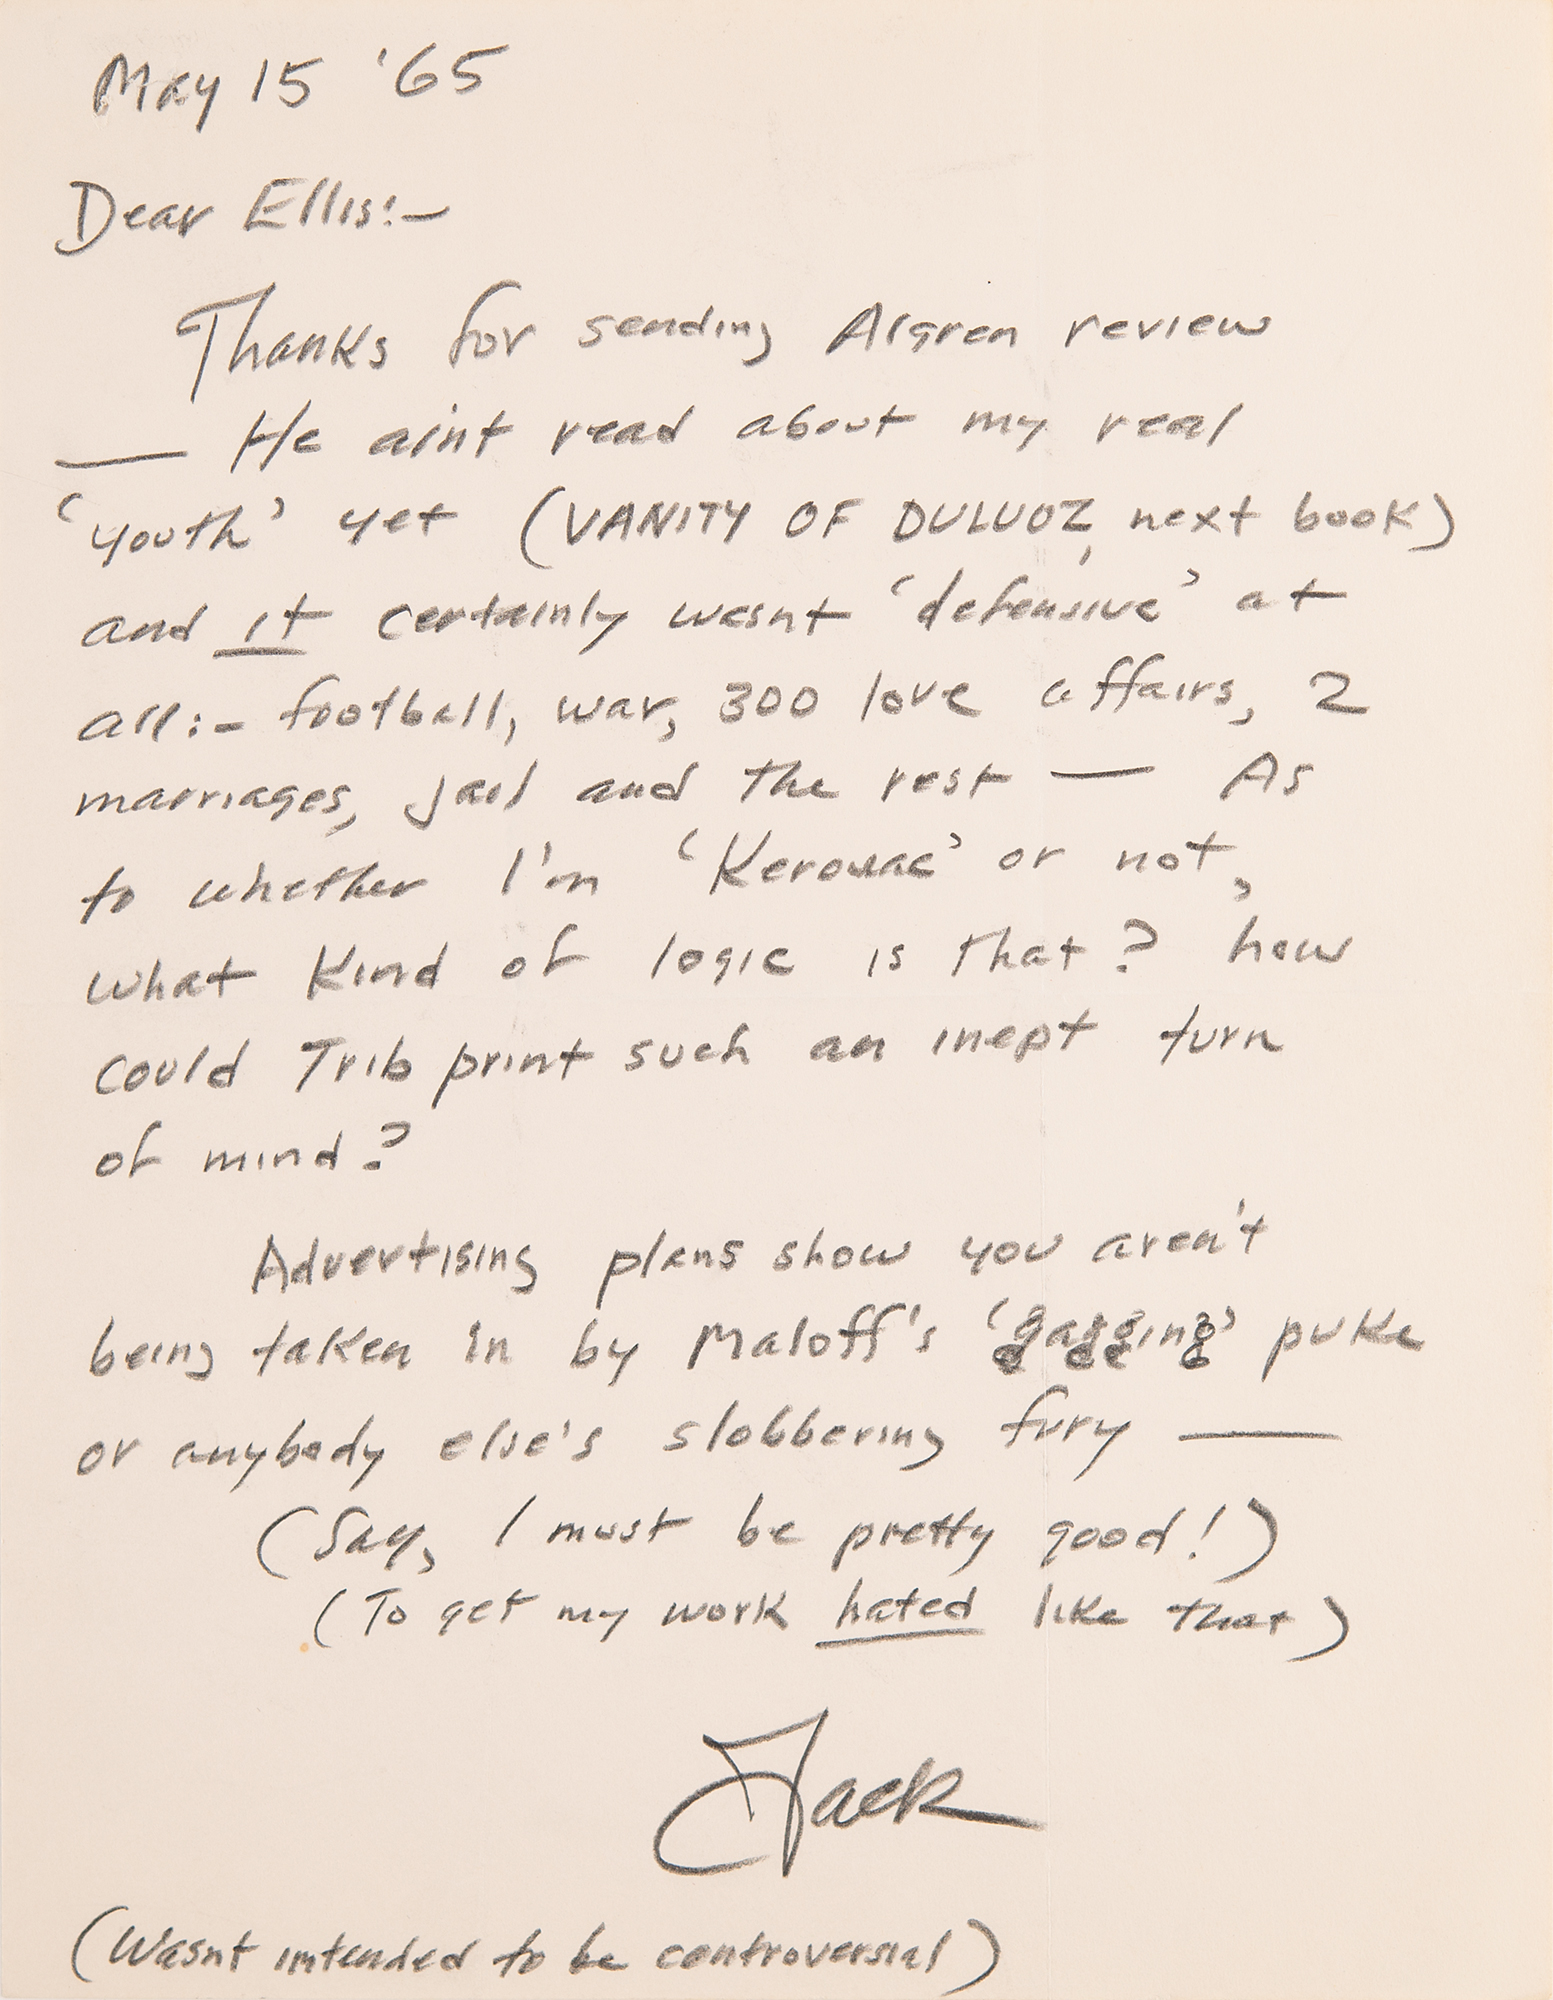 May 15 '65
Dear Ellis:—
Thanks for sending Algren review
— He ain't read about my real
'youth' yet (VANITY OF DULUOZ, next book)
and it certainly wasnt 'defensive' at
all:- football, war, 300 love affairs, 2
marriages, jail and the rest — As
to whether I'm 'Kerouac' or not,
what kind of logic is that? how
could Trib print such an inept turn
of mind?
Advertising plans show you aren't
being taken in by Maloff's 'gagging' puke
or anybody else's slobbering fury —
(Say, I must be pretty good!)
(To get my work hated like that)
Jack
(Wasnt intended to be controversial)